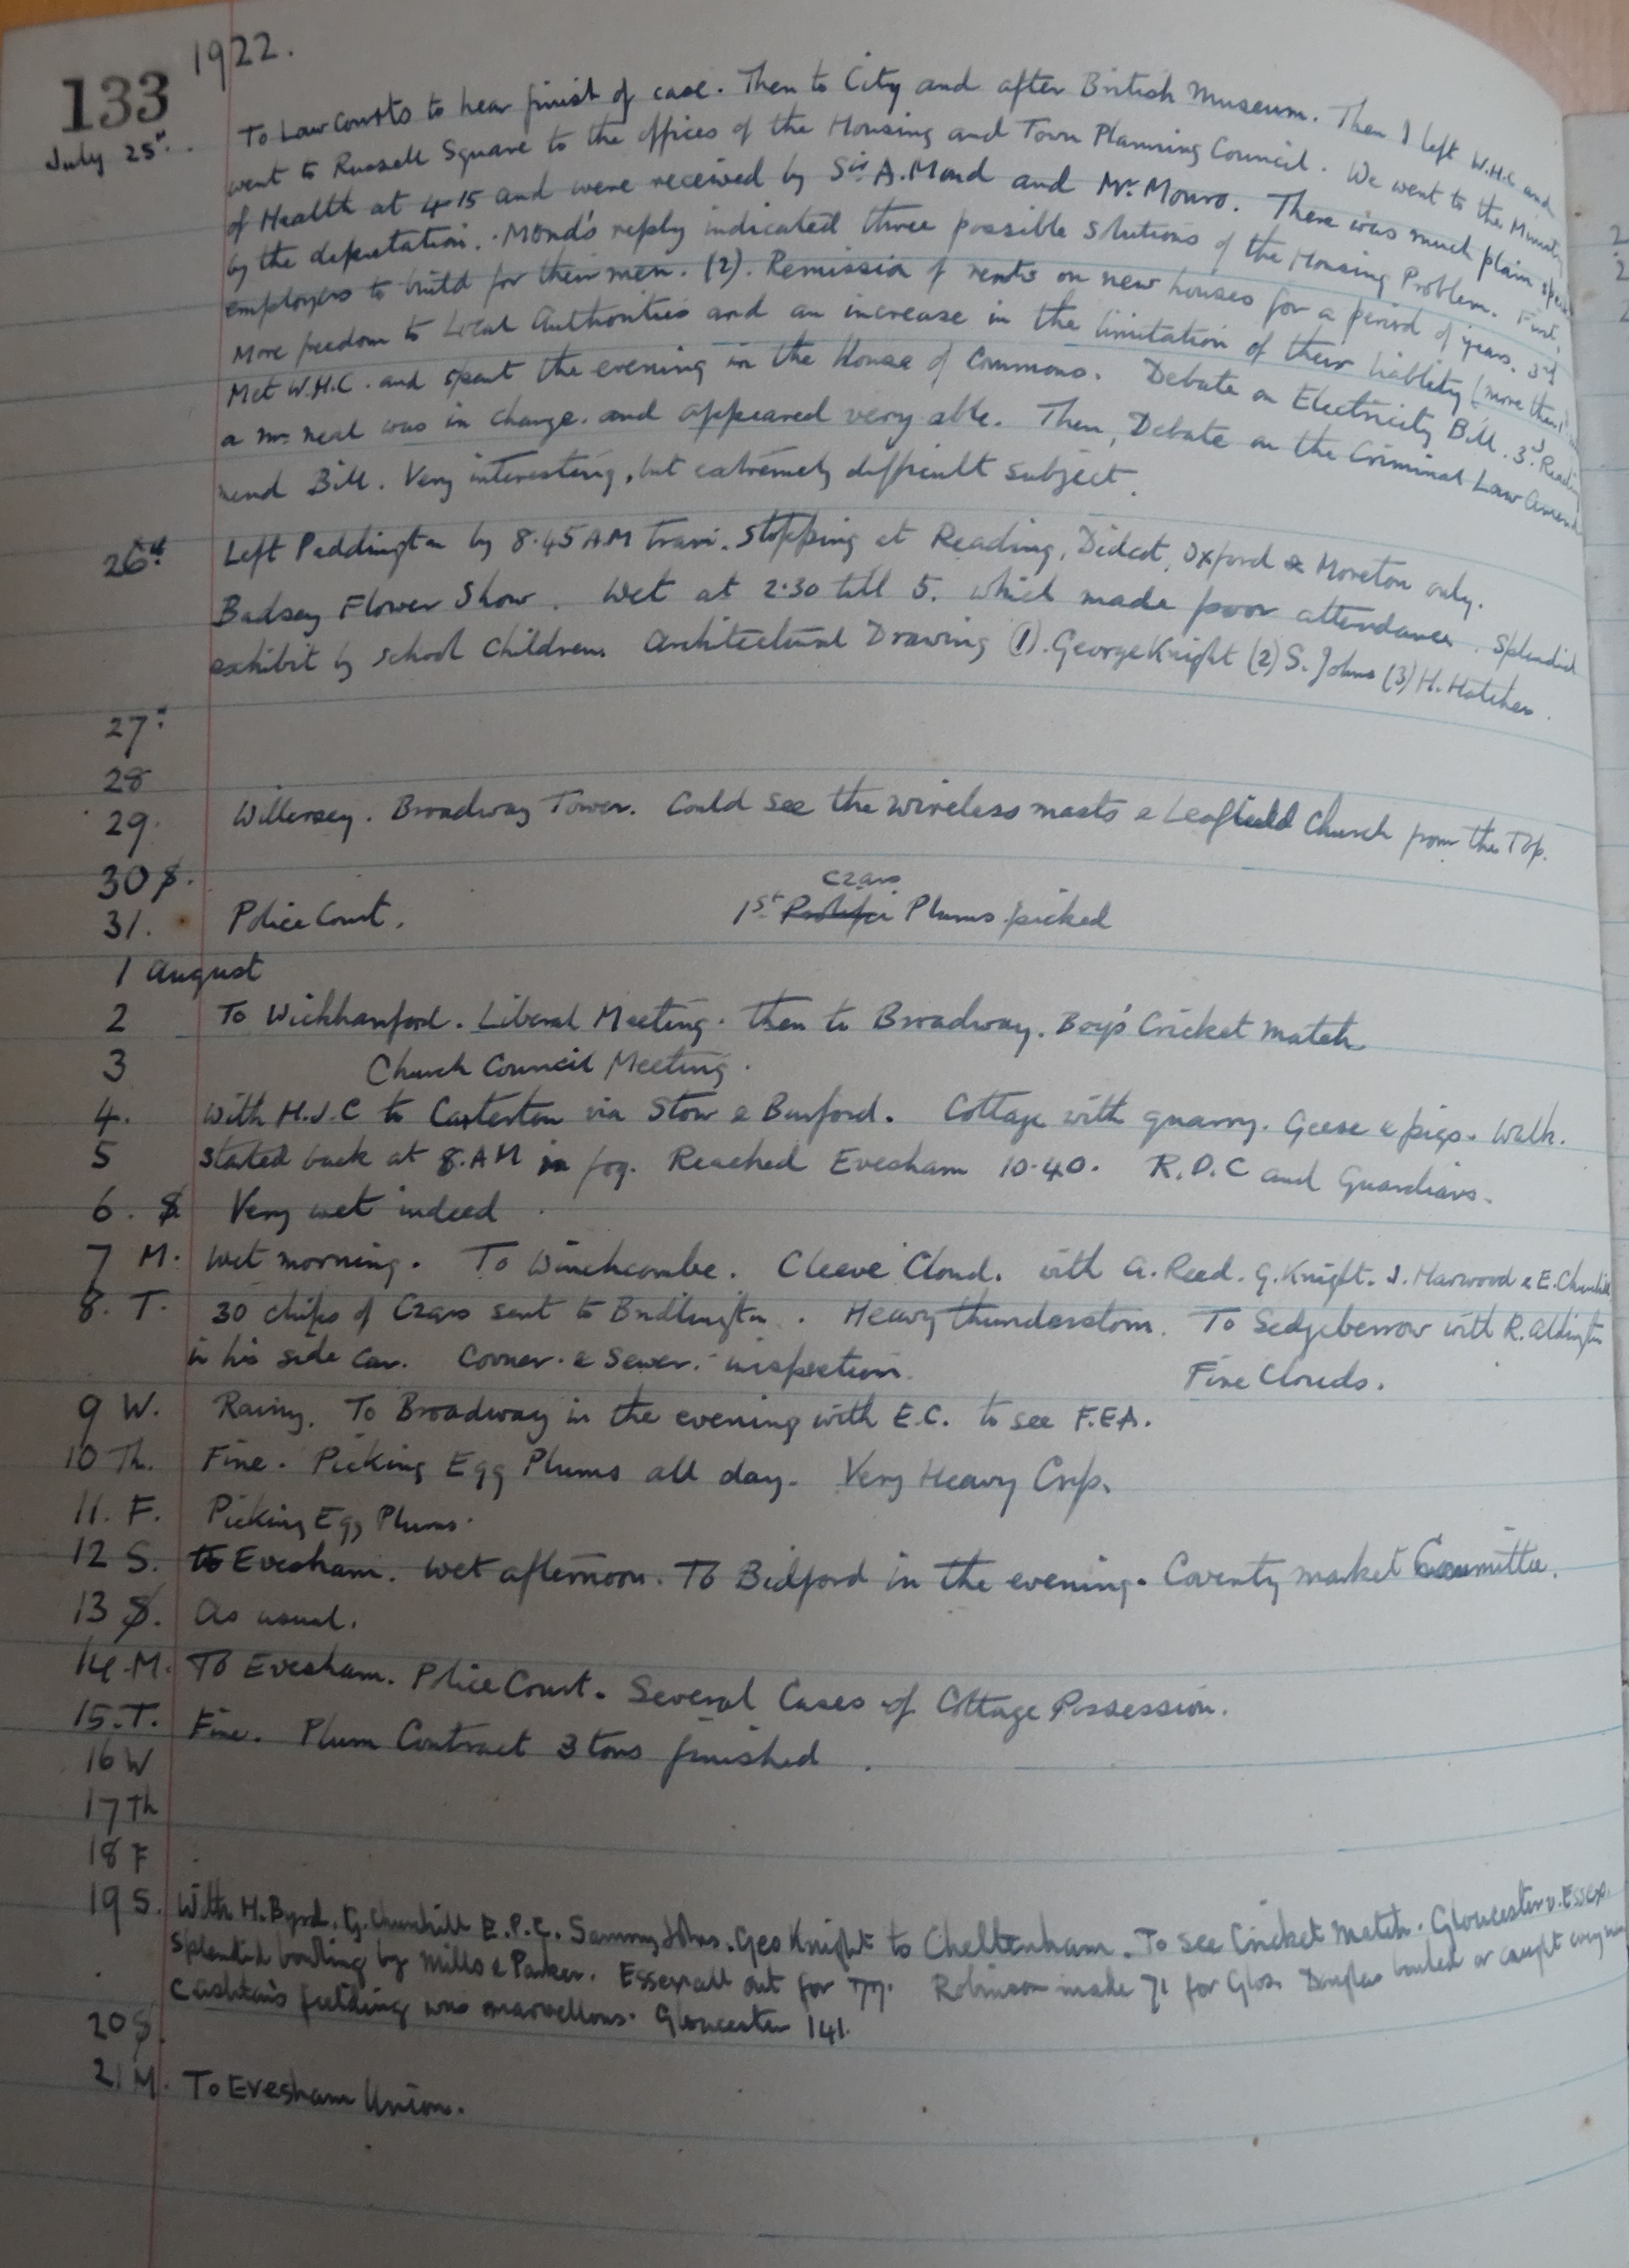 133 1922.
July 25th. To Law Courts to hear finish of case. Then to City and after British Museum. Then I left W.H.C and
went to Russell Square to the offices of the Housing and Town Planning Council. We went to the Ministry
of Health at 4-15 and were received by Sir A. Mond and Mr. Monro. There was much plain
by the deputation. Mond's reply indicated three possible solutions of the Housing Problem. First,
employers to build for their men. (2). Remission of rents on new houses for a period of years. 3rd
More freedom to Local Authorities and an increase in the limitation of their liablity (more than
Met W.H.C. and spent the evening in the House of Commons. Debate on Electricity Bill. 3rd Reading
a Mr. Neal was in charge. and appeared very able. Then, Debate on the Criminal Law Amend
mend Bill. Very interesting, but extremely difficult subject.
26th Left Paddington by 8.45 A.M train. Stopping at Reading, Didcot, Oxford & Moreton only.
Badsey Flower Show. Wet at 2.30 till 5. which made poor attendance. Splendid
exhibit by school children. Architectural Drawing (1). George Knight (2) S. Johns (3) H. Hatcher.
27th
28
29. Willersey. Broadway Tower. Could see the wireless masts & Leafield Church from the Top.
30 S.
Czars
31. Police Court. 1st Prolific Plums picked
1 August
2 To Wickhamford. Liberal Meeting. then to Broadway. Boy's Cricket Match
3 Church Council Meeting.
4. With H.J.C to Carterton via Stow & Burford. Cottage with quarry. Geese & pigs. Walk.
5 Stated back at 8.AM in fog. Reached Evesham 10.40. R.D.C and Guardians.
6. S Very wet indeed.
7 M. Wet morning. To Winchcombe. Cleeve Cloud. with A. Reed. G. Knight. J. Harwood & E. Churchill
8. T. 30 chips of Czars sent to Bridlington. Heavy thunderstorm. To Sedgeberrow with R. Aldington
in his side car. Corner & Sewer. inspection. Fine Clouds.
9 W. Rainy. To Broadway in the evening with E.C. to see F.E.A.
10 Th. Fine. Picking Egg Plums all day. Very Heavy Crop.
11. F. Picking Egg Plums.
12 S. to Evesham. Wet afternoon. To Bidford in the evening. Coventry market Committee.
13 S. As usual.
14 M. To Evesham. Police Court. Several Cases of Cottage Possession.
15. T. Fine. Plum Contract 3 tons finished.
16 W
17 Th
18 F
19 S. With H. Byrd. G. Churchill E.P.C. Sammy Johns. Geo Knight to Cheltenham. To see Cricket Match. Gloucester v. Essex.
Splendid bowling by Mills & Parker. Essex all out for 77. Robinson made 71 for Glos. Douglas bowled or caught
fielding was marvellous. Gloucester 141.
20 S.
21 M. To Evesham Union.